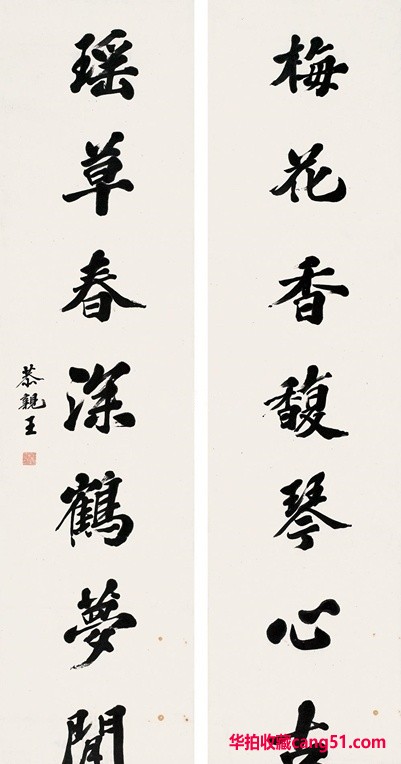 梅花香馥琴心
瑶草春深鶴夢
恭親王
华拍收藏cang51.com